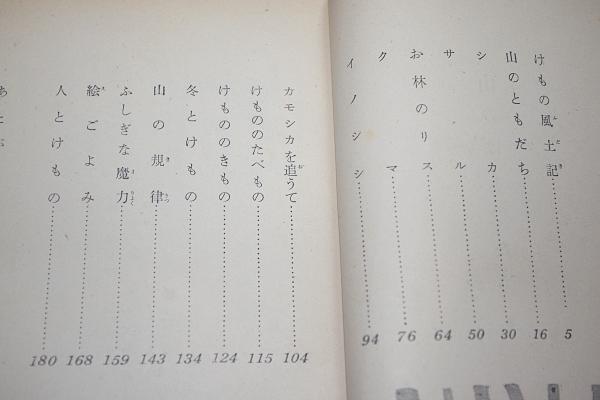 けもの風土記 5
山のともだち 16
シカ 30
サル 50
お林のリス 64
クマ 76
イノシシ 94
カモシカを追うて 104
けもののたべもの 115
けもののきもの 124
冬とけもの 134
山の規律 143
ふしぎな魔力 159
絵ごよみ 168
人とけもの 180